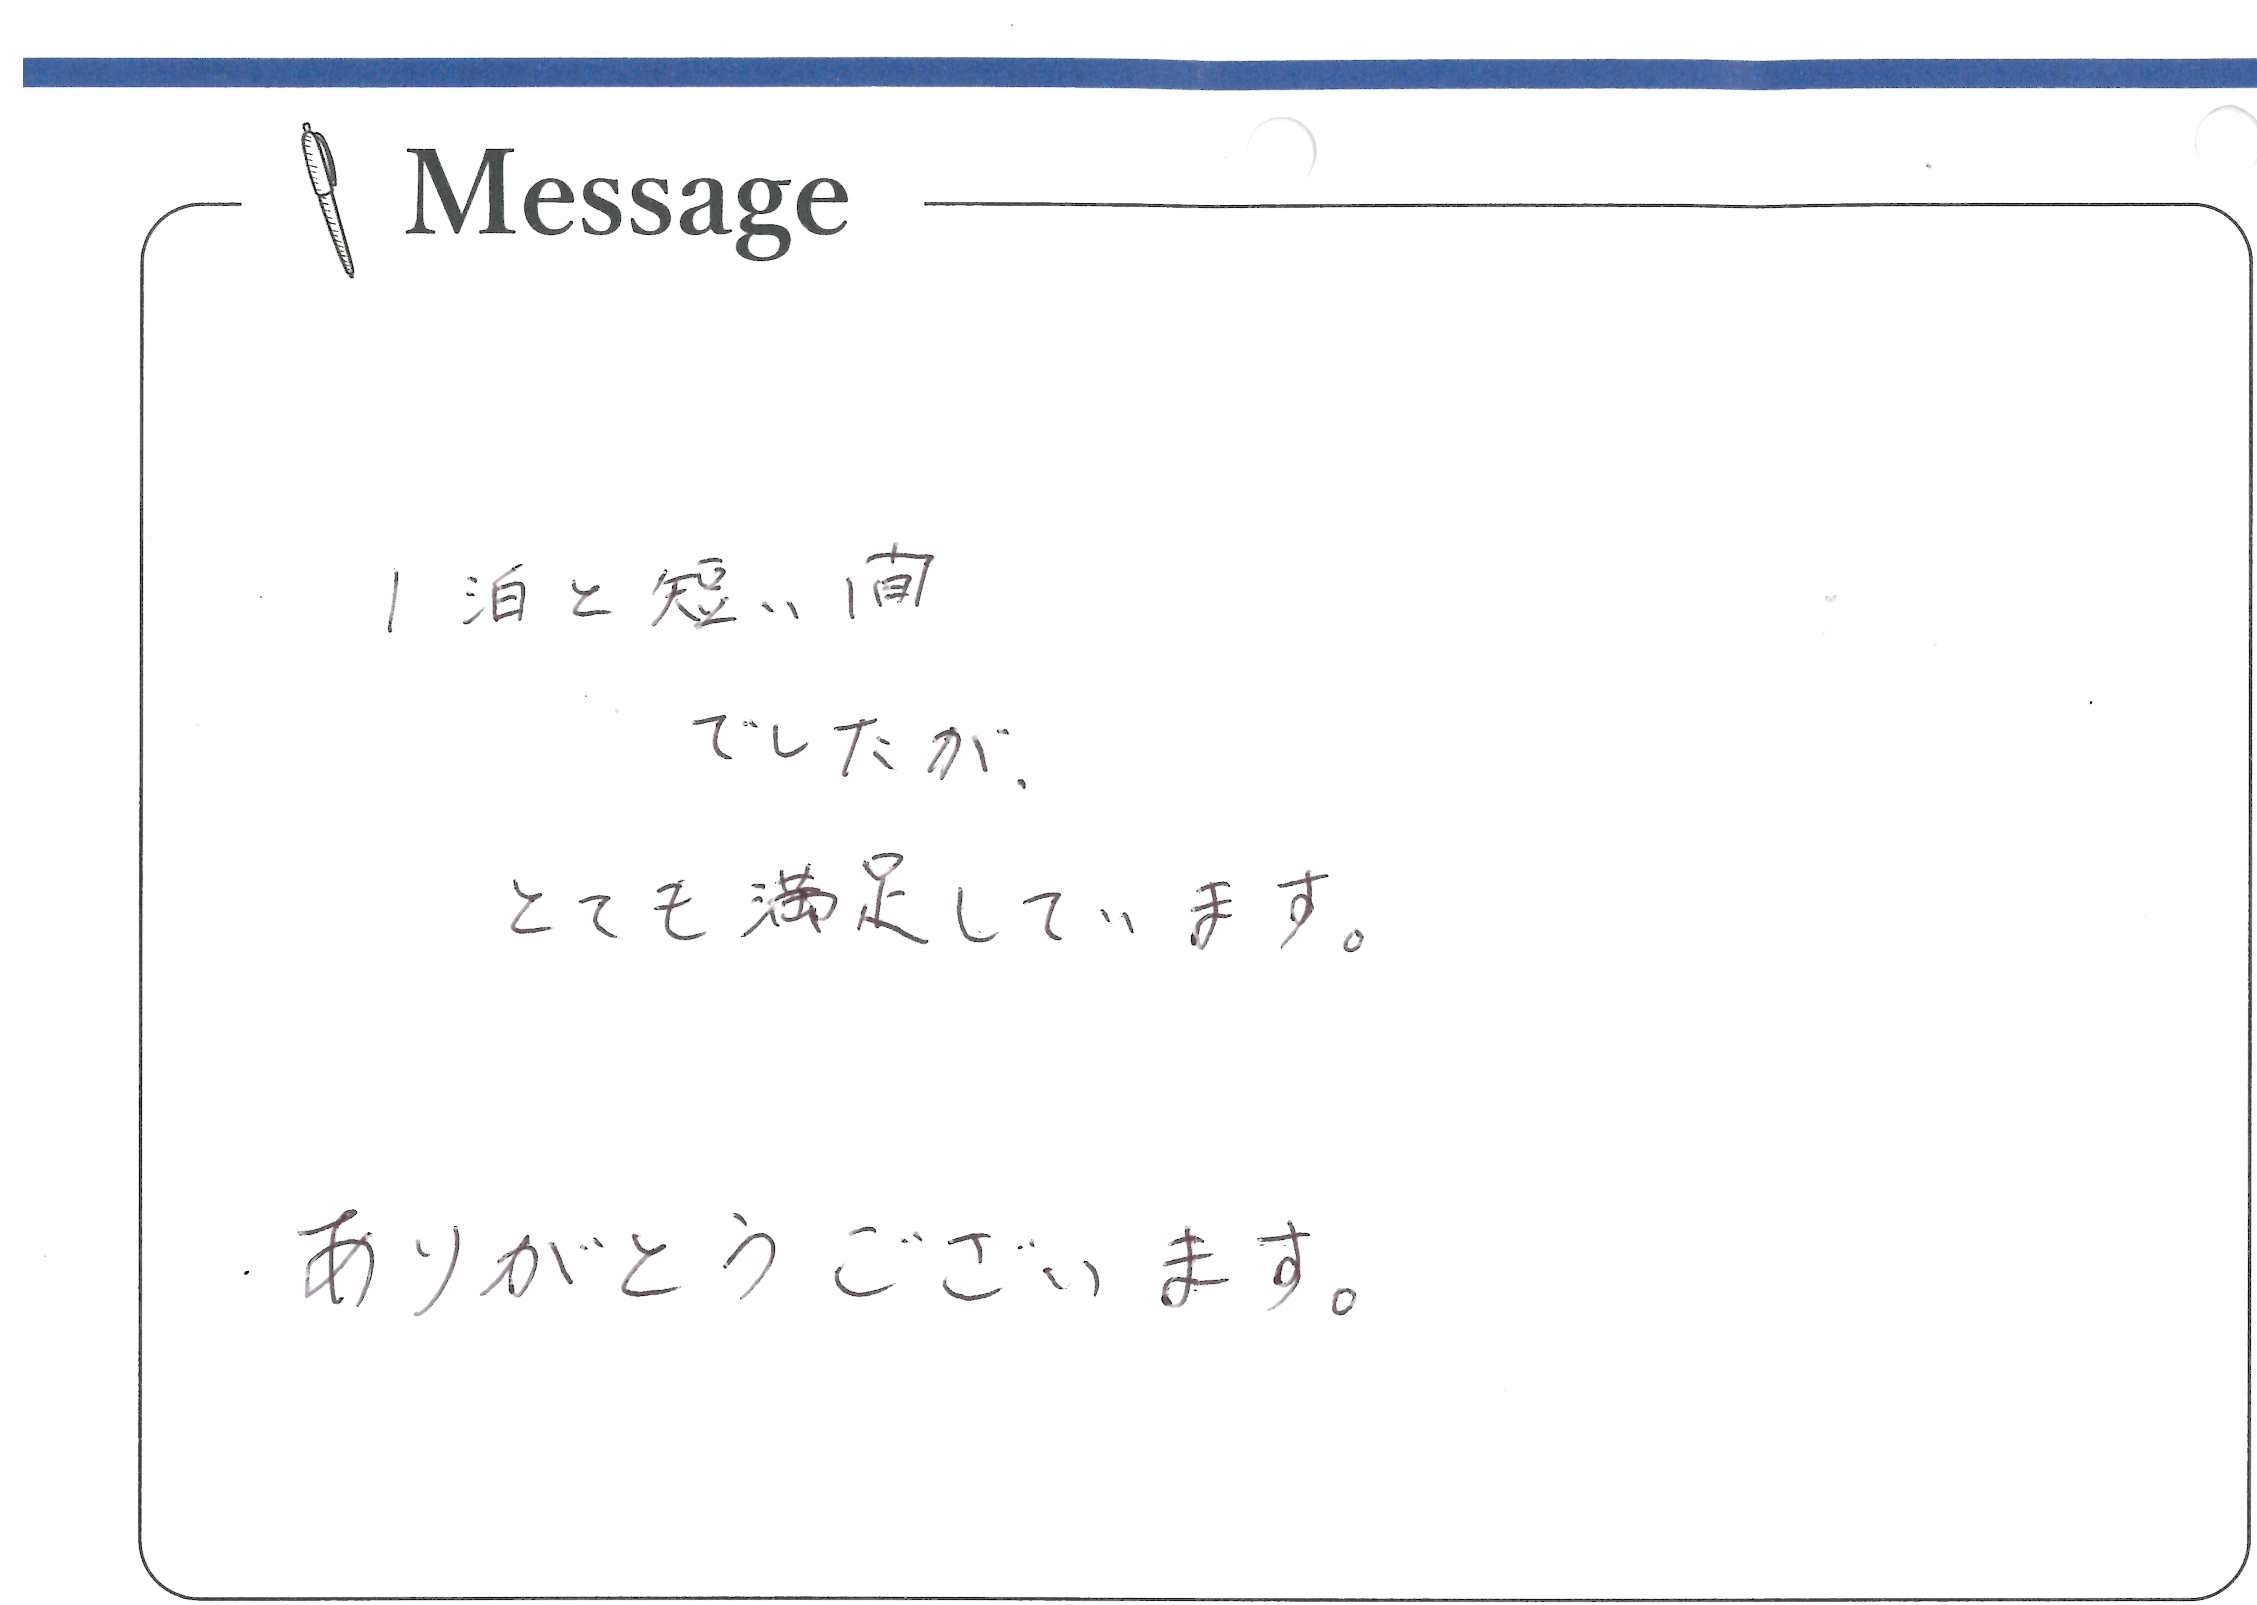 Message
1泊と短い間
でしたが、
とても満足しています。
ありがとうございます。